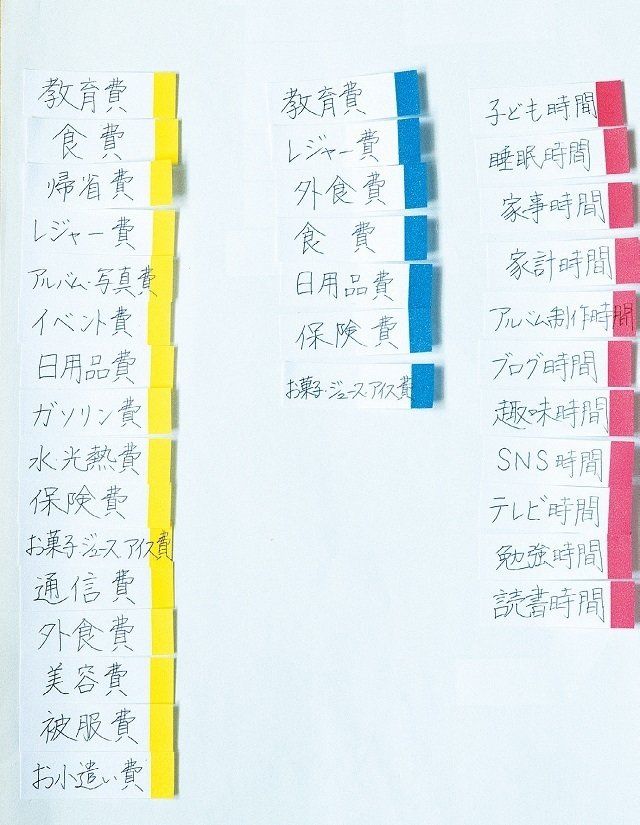 教育費
食費
帰省費
レジャー費
アルバム・写真費
イベント費
日用品費
ガソリン費
水・光熱費
保険費
お菓子・ジュース・アイス費
通信費
外食費
美容費
被服費
お小遣い費
教育費
レジャー費
外食費
食費
日用品費
保険費
お菓子・ジュース・アイス費
子ども時間
睡眠時間
家事時間
家計時間
アルバム制作時間
ブログ時間
趣味時間
SNS時間
テレビ時間
勉強時間
読書時間